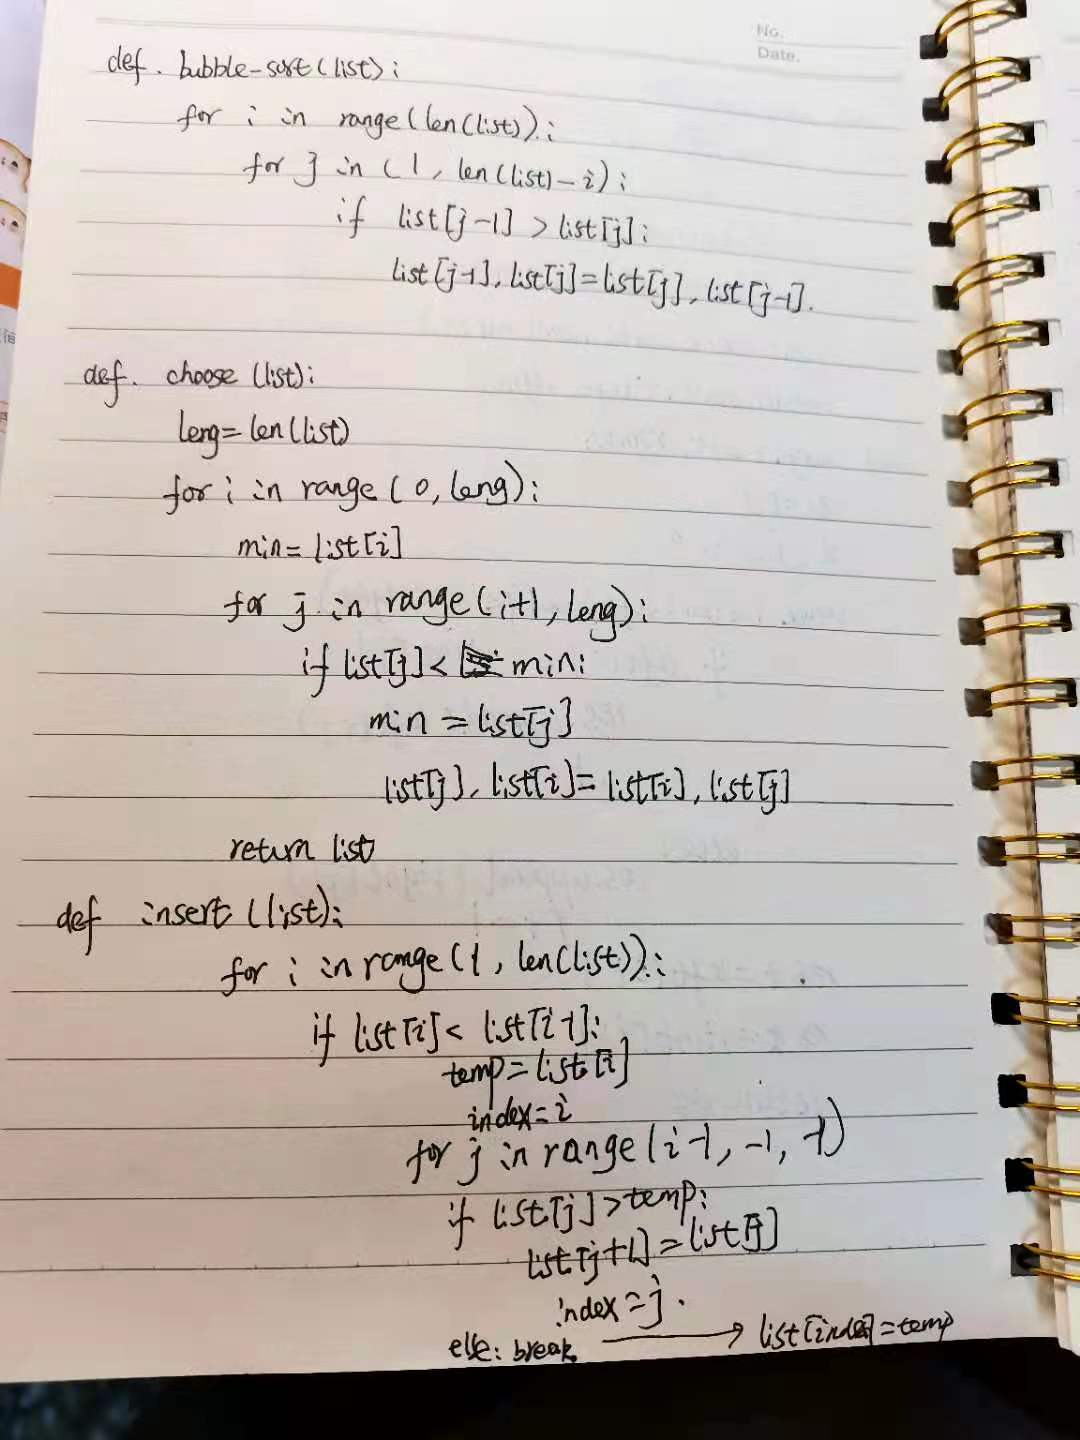 No.
Date.
def. bubble-sort(list):
for i in range(len(list)):
for j in (1, len(list)-i):
if list[j-1] > list[j]:
list[j-1], list[j]=list[j], list[j-1].
def. choose (list):
leng=len(list)
for i in range(0, leng):
min=list[i]
for j in range(i+1, leng):
if list[j]< min:
min = list[j]
list[j], list[i]=list[i], list[j]
return list
def insert (list):
for i in range(1, len(list)):
if list[i]< list[i-1]:
temp=list[i]
index=i
for j in range(i-1, -1, -1)
if list[j]>temp:
list[j+1]=list[j]
index=j.
else: break → list[index]=temp